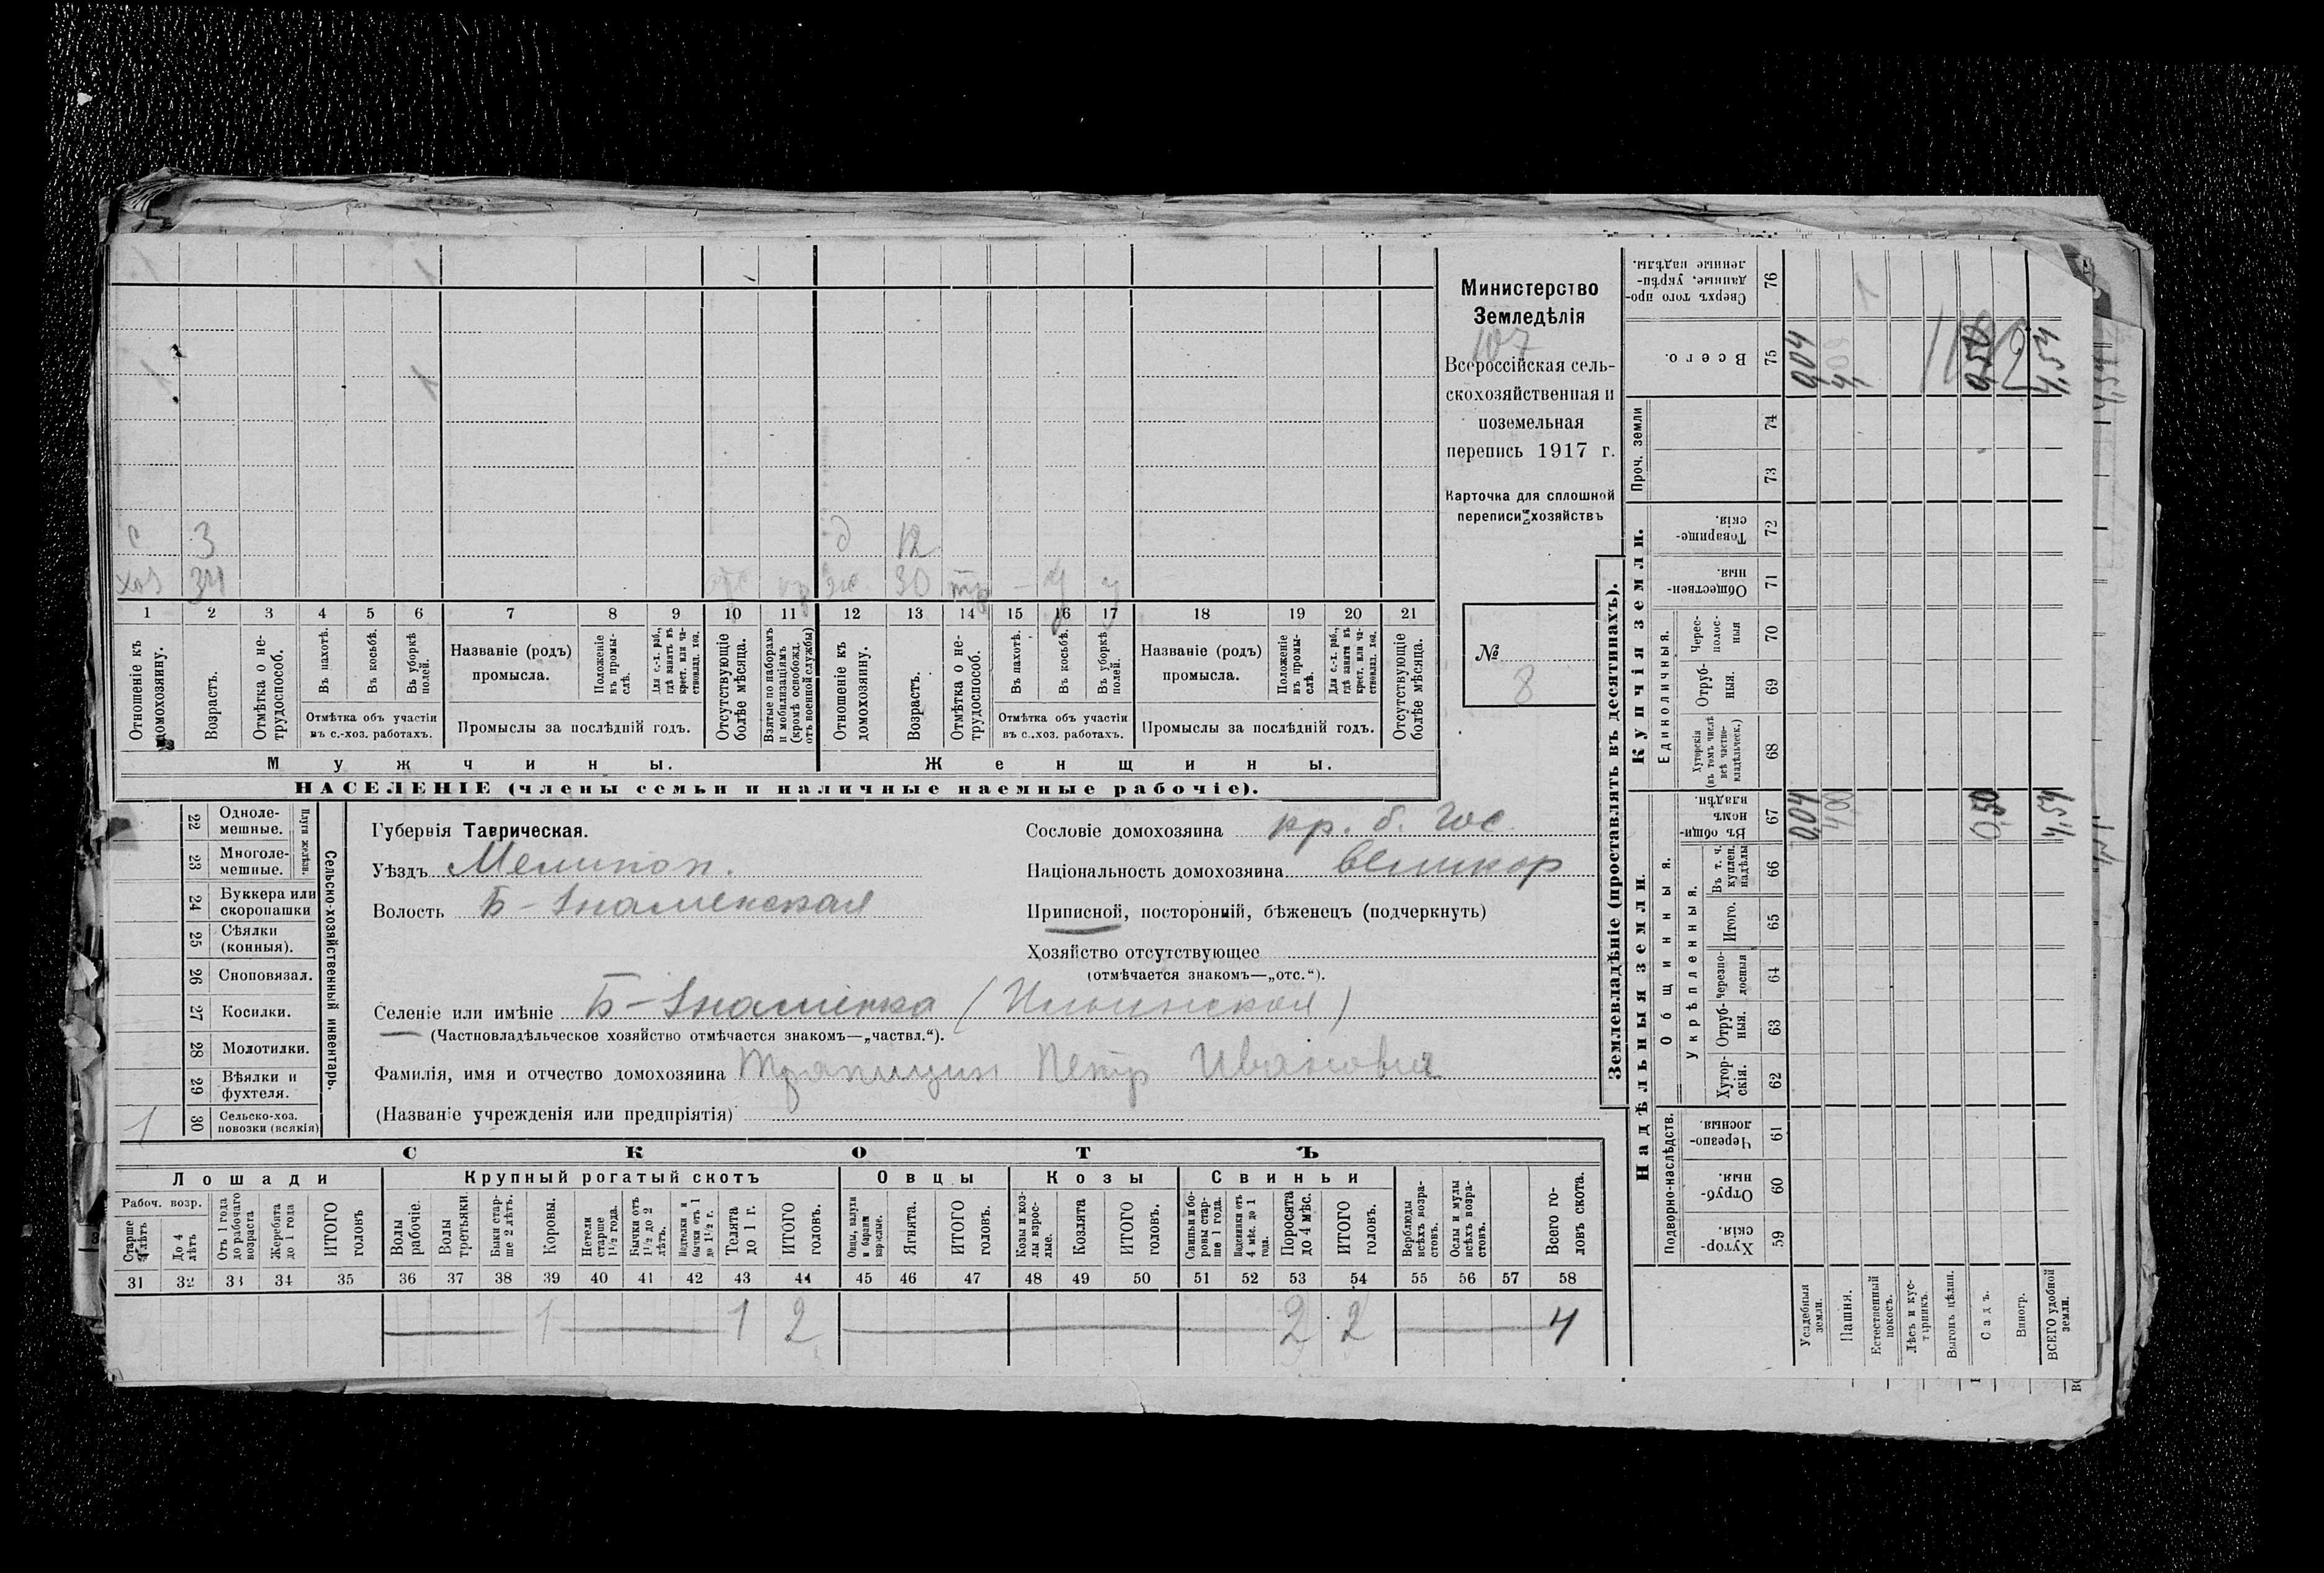 с 3 д 12
хоз 34 ж 30
1 2 3 4 5 6 7 8 9 10 11 12 13 14 15 16 17 18 19 20 21
Отношеніе къ домохозяину.
Возрастъ.
Отмѣтка о не-трудоспособ.
Въ пахотѣ.
Въ косьбѣ.
Въ уборкѣ полей.
Отмѣтка объ участіи
въ с.-хоз. работахъ.
Названіе (родъ)
промысла.
Положеніе въ промы-слѣ.
Для с.-х. раб., гдѣ занятъ въ крест. или ча-стновлад. хоз.
Промыслы за послѣдній годъ.
Отсутствующіе болѣе мѣсяца.
Взятые по наборамъ и мобилизаціямъ (кромѣ освобожд. отъ военной службы)
Отношеніе къ домохозяину.
Возрастъ.
Отмѣтка о не-трудоспособ.
Въ пахотѣ.
Въ косьбѣ.
Въ уборкѣ полей.
Отмѣтка объ участіи
въ с.-хоз. работахъ.
Названіе (родъ)
промысла.
Положеніе въ промы-слѣ.
Для с.-х. раб., гдѣ заняты въ крест. или ча-стновлад. хоз.
Промыслы за послѣдній годъ.
Отсутствующіе болѣе мѣсяца.
Мужчины. Женщины.
НАСЕЛЕНІЕ (члены семьи и наличные наемные рабочіе).
Министерство
Земледѣлія
107
Всероссійская сель-
скохозяйственная и
поземельная
перепись 1917 г.
Карточка для сплошной
переписи хозяйствъ
№
8
Плуги желѣзн.
22 Одноле-мешные.
23 Многоле-мешные.
24 Буккера или скоропашки
25 Сѣялки (конныя).
26 Сноповязал.
27 Косилки.
28 Молотилки.
29 Вѣялки и фухтеля.
1 30 Сельско-хоз. повозки (всякія)
Сельско-хозяйственный инвентарь.
Губернія Таврическая.
Уѣздъ Мелитоп.
Волость Б-Знаменская
Сословіе домохозяина кр. б. гос
Національность домохозяина великор
Приписной, посторонній, бѣженецъ (подчеркнуть)
Хозяйство отсутствующее
(отмѣчается знакомъ—„отс.“).
Селеніе или имѣніе Б-Знаменка (Ильинская)
(Частновладѣльческое хозяйство отмѣчается знакомъ—„частвл.“).
Фамилія, имя и отчество домохозяина Трапицин Петр Иванович
(Названіе учрежденія или предпріятія)
СКОТЪ
Лошади Крупный рогатый скотъ Овцы Козы Свиньи
Рабоч. возр.
Старше 4 лѣтъ
До 4 лѣтъ
Отъ 1 года до рабочаго возраста
Жеребята до 1 года
ИТОГО головъ
Волы рабочіе.
Волы третьяки.
Быки стар-ше 2 лѣтъ.
Коровы.
Нетели старше 1½ года.
Бычки отъ 1½ до 2 лѣтъ.
Подтелки и бычки отъ 1 до 1½ г.
Телята до 1 г.
ИТОГО головъ.
Овцы, валухи и бараны взрослые.
Ягнята.
ИТОГО головъ.
Козы и коз-лы взрос-лые.
Козлята
ИТОГО головъ.
Свиньи и бо-ровы стар-ше 1 года.
Подсвинки отъ 4 мѣс. до 1 года.
Поросята до 4 мѣс.
ИТОГО головъ.
Верблюды всѣхъ возра-стовъ.
Ослы и мулы всѣхъ возра-стовъ.
Всего го-ловъ скота.
31 32 33 34 35 36 37 38 39 40 41 42 43 44 45 46 47 48 49 50 51 52 53 54 55 56 57 58
1 1 2 2 2 4
Землевладѣніе (проставлять въ десятинахъ).
Надѣльныя земли. Купчія земли. Проч. земли
Подворно-наслѣдств. Общинныя. Единоличныя.
Укрѣпленныя.
Хутор-скія. 59
Отруб-ныя. 60
Черезпо-лосныя. 61
Хутор-скія. 62
Отруб-ныя. 63
Черезпо-лосныя 64
Итого. 65
Въ т. ч. куплен. надѣлы 66
Въ общин-номъ владѣн. 67
Хуторскія (въ томъ числѣ всѣ частно-владѣльческ.) 68
Отруб-ныя. 69
Черес-полос-ныя 70
Обществен-ныя. 71
Товарище-скія. 72
73
74
Всего. 75
Сверхъ того про-данные, укрѣп-ленные надѣлы. 76
Усадебныя земли. 0,04 0,04
Пашня. 4,00 4,00 1
Естественный покосъ.
Лѣсъ и кус-тарникъ.
Выгонъ цѣлин.
Садъ. 0,50 0,50
Виногр.
ВСЕГО удобной земли. 4,54 4,54